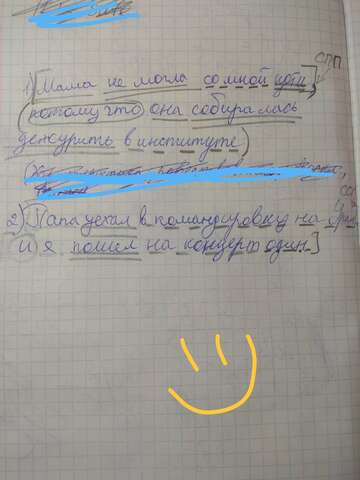 СПП
1) [Мама не могла со мной идти],
(потому что она собиралась
дежурить в институте)
2) [Папа уехал в командировку на
и я пошел на концерт один.]